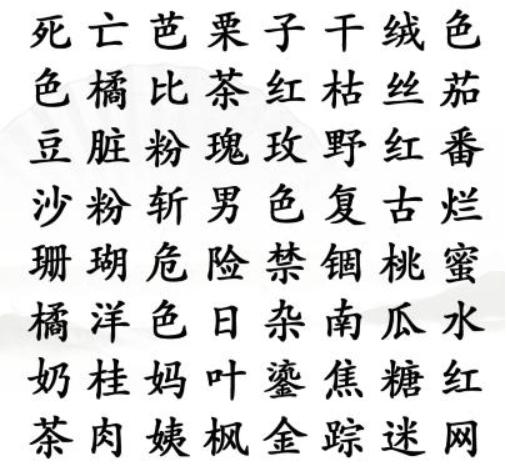 死亡芭栗子干绒色
色橘比茶红枯丝茄
豆脏粉瑰玫野红番
沙粉斩男色复古烂
珊瑚危险禁锢桃蜜
橘洋色日杂南瓜水
奶桂妈叶鎏焦糖红
茶肉姨枫金踪迷网